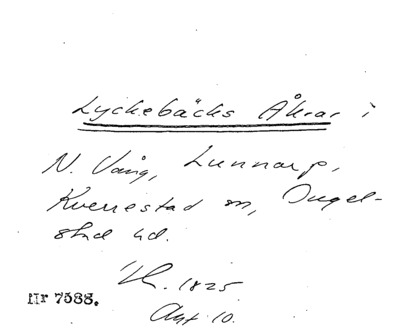 Lyckebäcks Åkrar i
N. Vång, Lunnarp,
Kverrestad sn, Ingel-
stad hd.
Lh. 1825
Akt 10.
Nr 7588.